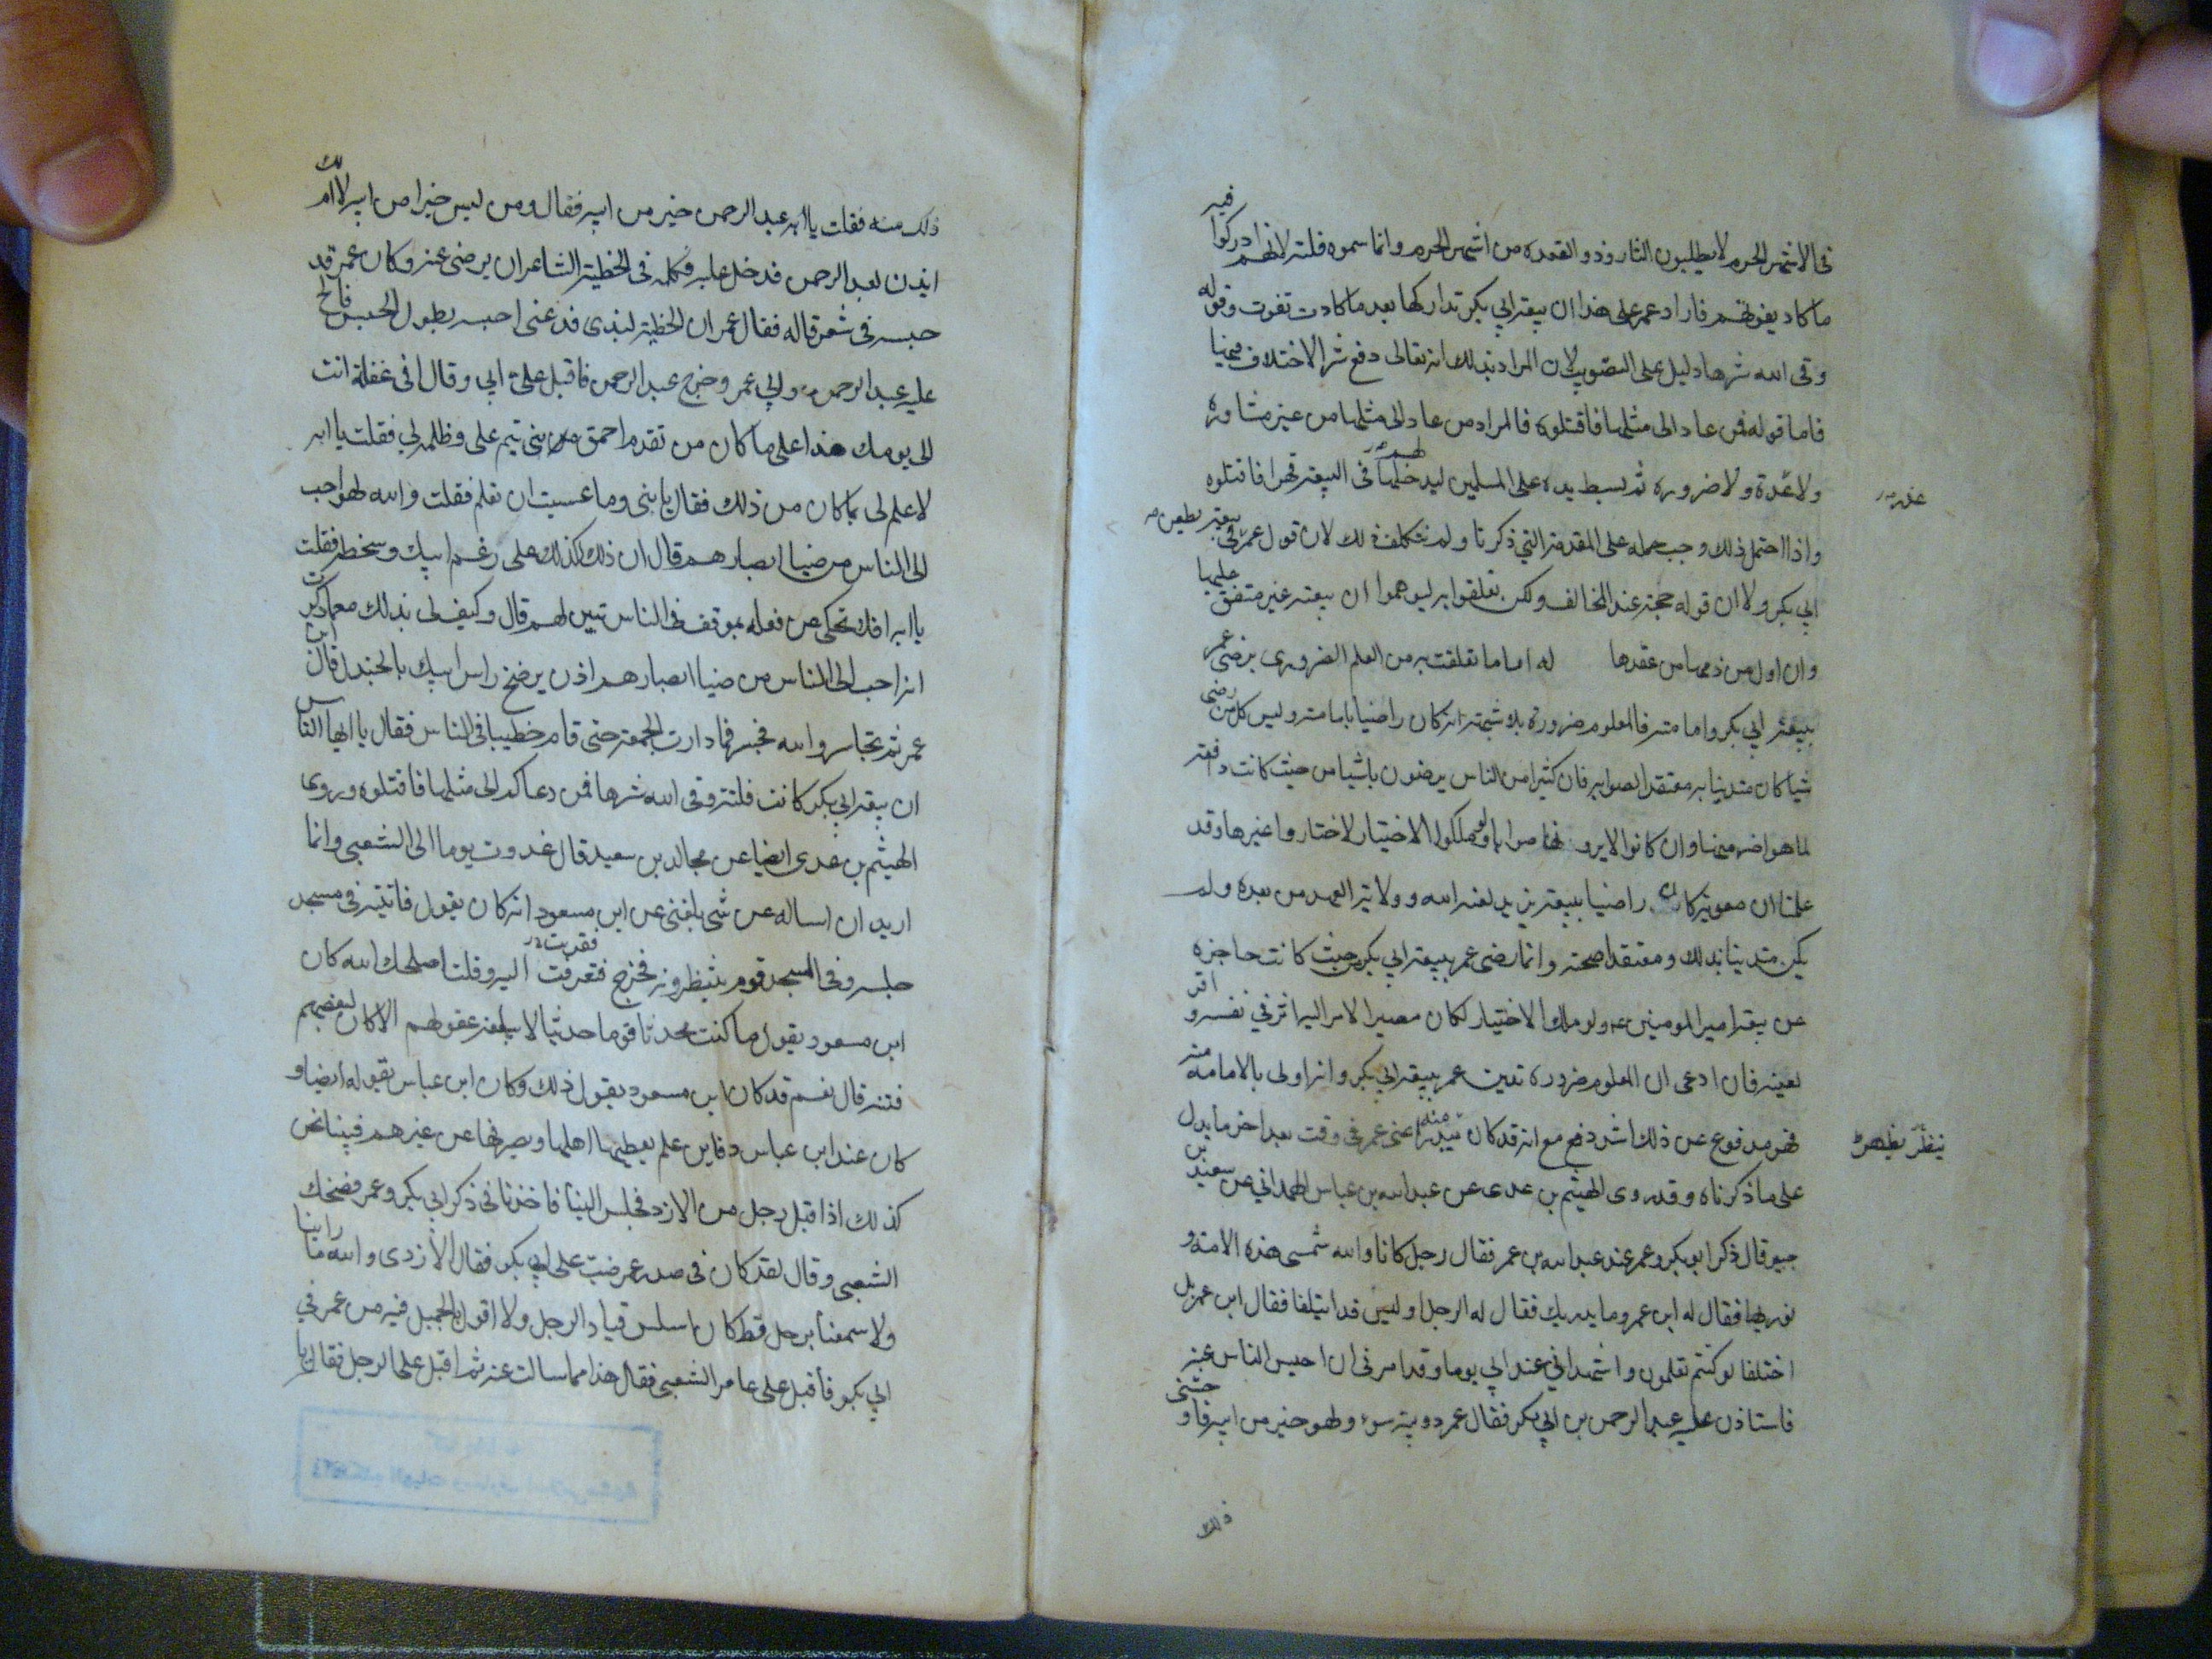 فى الاشهر الحرم لا يطلبون الثار وذو القعده من اشهر الحرم وانما سموه فلتة لانهم ادركوا فيه
ما كاد يفوتهم فاراد عمر على هذا ان بيعة ابي بكر تداركها بعد ما كادت تفوت وقوله
وقى الله شرها دليل على التصويب لان المراد بذلك انه تعالى دفع شر الاختلاف فيها
فاما قوله فمن عاد الى مثلها فاقتلوه فالمراد من عاد الى مثلها من غير مشاوره
ولا عدة ولا ضروره ثم بسط يده على المسلمين ليدخلهم فى البيعة قهرا فاقتلوه
عذر
واذا احتمل ذلك وجب حمله على المقدمة التي ذكرنا ولم نتكلف ذلك لان قول عمر فى بيعة يطعن
ابي بكر ولا ان قوله حجة عند المخالف ولكن تعلقوا به ليوهموا ان بيعته غير متفق عليها
وان اول من ذمها من عقدها له اما ما تعلقت به من العلم الضرورى برضى عمر
ببيعة ابي بكر وامامته فالمعلوم ضرورة بلا شبهة انه كان راضيا بامامته وليس كل من رضى
شيا كان متدينا به معتقد الصوابه فان كثيرا من الناس يرضون باشيا من حيث كانت دافعة
لما هو اضر منها وان كانوا لا يرونها صوابا ولو ملكوا الاختيار لاختاروا غيرها وقد
علمنا ان معوية كان راضيا ببيعة يزيد لعنه الله وولاية العهد من بعده ولم
يكن متدينا بذلك ومعتقدا صحته وانما رضى عمر ببيعة ابي بكر من حيث كانت حاجزه
عن بيعة امير المومنين ع ولو ملك الاختيار لكان مصير الامر اليه اثر في نفسه و اقر
لعينه فان ادعى ان المعلوم ضروره تدين عمر ببيعة ابي بكر وانه اولى بالامامه منه
فهو مدفوع عن ذلك اشد دفع مع انه قد كان يبدر منه اعنى عمر فى وقت بعد اخر ما يدل
على ما ذكرناه وقد روى الهيثم بن عدى عن عبد الله بن عباس الهمداني عن سعيد بن
جبير قال ذكر ابو بكر وعمر عند عبد الله بن عمر فقال رجل كانا والله شمسى هذه الامه و
نوريها فقال له ابن عمر وما يدريك فقال له الرجل او ليس قد ايتلفا فقال ابن عمر بل
اختلفا لو كنتم تعلمون واشهد اني عند ابي يوما وقد امرنى ان احبس الناس عنه
فاستاذن عليه عبد الرحمن بن ابي بكر فقال عمر دويبة سوء ولهو خير من ابيه فاوحشنى
ذلك
ذلك منه فقلت يا ابه عبد الرحمن خير من ابيه فقال ومن ليس خيرا من ابيه لا ام لك
ايذن لعبد الرحمن فدخل عليه فكلمه فى الحطية الشاعر ان يرضى عنه وكان عمر قد
حبسه فى شعر قاله فقال عمر ان الحطية لبذى فدعنى احبسه بطول الحبس فالح
عليه عبد الرحمن وابي عمر وخرج عبد الرحمن فاقبل على ابي وقال افى غفلة انت
الى يومك هذا على ما كان من تقدم احمق بنى تيم على وظلمه لي فقلت يا ابه
لا علم لى بما كان من ذلك فقال يا بنى وما عسيت ان تعلم فقلت والله لهو احب
الى الناس من ضيا ابصارهم قال ان ذلك كذلك على رغم ابيك وسخطه فقلت
يا ابه افلا تحكى عن فعله بموقف فى الناس تبين لهم قال وكيف لى بذلك مع ما ذكرت
انه احب الى الناس من ضيا ابصارهم اذن يرضخ راس ابيك بالجندل قال ابن
عمر ثم تجاسر والله فجسر فما دارت الجمعة حتى قام خطيبا فى الناس فقال يا ايها الناس
ان بيعة ابي بكر كانت فلتة وقى الله شرها فمن دعاكم الى مثلها فاقتلوه وروى
الهيثم بن عدى ايضا عن مجالد بن سعيد قال غدوت يوما الى الشعبى وانما
اريد ان اساله عن شى بلغنى عن ابن مسعود انه كان يقول فاتيته فى مسجد
حليه وفى المسجد قوم ينتظرونه فخرج فتعرفت اليه وقلت اصلحك الله كان
فتقربت
ابن مسعود يقول ما كنت محدثا قوما حديثا لا يبلغه عقولهم الا كان لبعضهم
فتنه قال نعم قد كان ابن مسعود يقول ذلك وكان ابن عباس يقوله ايضا و
كان عند ابن عباس دفاين علم يعطيها اهلها ويصرفها عن غيرهم فبينا نحن
كذلك اذ اقبل رجل من الازد فجلس الينا فاخذنا فى ذكر ابي بكر وعمر فضحك
الشعبى وقال لقد كان فى صدر عمر ضب على ابي بكر فقال الازدى والله ما راينا
ولا سمعنا برجل قط كان اسلس قيادا لرجل ولا اقول بالجميل فيه من عمر في
ابي بكر فاقبل على عامر الشعبى فقال هذا مما سالت عنه ثم اقبل على الرجل فقال يا